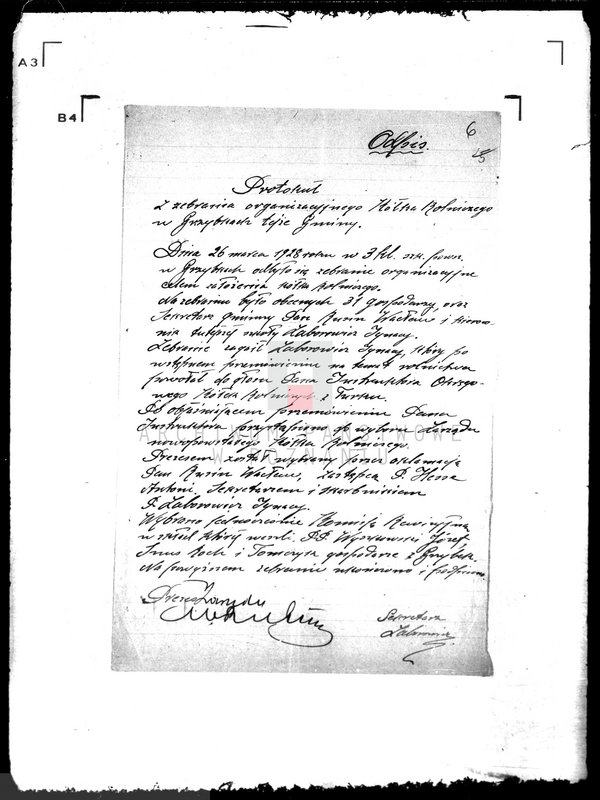 A3
B4
6
Odpis.
Protokuł
z zebrania organizacyjnego Kółka Rolniczego
w Grzybkach tejże Gminy.
Dnia 26 marca 1928 roku w 3 kl. szk. powsz.
w Grzybkach odbyło się zebranie organizacyjne
celem założenia kółka rolniczego.
Na zebraniu było obecnych 31 gospodarzy, oraz
Sekretarz gminy Pan Rusin Wacław i kierow-
nik tutejszej szkoły Zaborowicz Ignacy.
Zebranie zagaił Zaborowicz Ignacy, który po
wstępnem przemówieniu na temat rolnictwa
powołał do głosu Pana Instruktora Okręgo-
wego Kółek Rolniczych z Turku.
Po objaśniającem przemówieniu Pana
Instruktora przystąpiono do wyboru Zarządu
nowopowstałego Kółka Rolniczego.
Prezesem został wybrany przez aklamację
Pan Rusin Wacław, zastępcą P. Hessa
Antoni, Sekretarzem i skarbnikiem
P. Zaborowicz Ignacy.
Wybrano jednocześnie Komisję Rewizyjną
w skład której weszli: P.P. Wyszkowski Józef,
Roch i Tomczyk gospodarze z Grzybek.
Na powyższem zebranie ukończono i podpisano
Prezes Zarządu
Sekretarz
Zaborowicz
ARCHIWUM PAŃSTWOWE
W POZNANIU